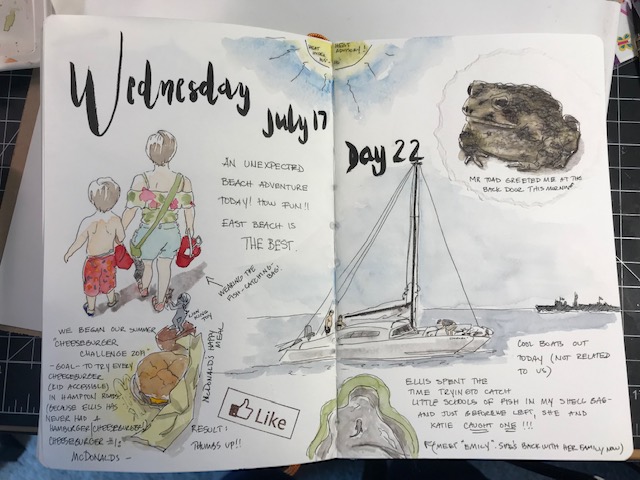 Wednesday
July 17
Day 22
HEAT
ADVISORY!
AN UNEXPECTED
BEACH ADVENTURE
TODAY! HOW FUN!!
EAST BEACH IS
THE BEST.
WEARING THE
FISH-CATCHING-
BAG!
MR TOAD GREETED ME AT THE
BACK DOOR THIS MORNING
WE BEGAN OUR SUMMER
"CHEESEBURGER
CHALLENGE 2019"
-GOAL- TO TRY EVERY
CHEESEBURGER
(KID ACCESSIBLE)
IN HAMPTON ROADS
(BECAUSE ELLIS HAS
NEVER HAD A
HAMBURGER/CHEESEBURGER)
CHEESEBURGER #1:
MCDONALDS-
LION KING
TOY
MCDONALDS HAPPY
MEAL
Like
RESULT:
THUMBS UP!!
COOL BOATS OUT
TODAY (NOT RELATED
TO US)
ELLIS SPENT THE
TIME TRYING TO CATCH
LITTLE SCHOOLS OF FISH IN MY SHELL BAG-
AND JUST BEFORE WE LEFT, SHE AND
KATIE CAUGHT ONE!!!
(MEET "EMILY". SHE'S BACK WITH HER FAMILY NOW)